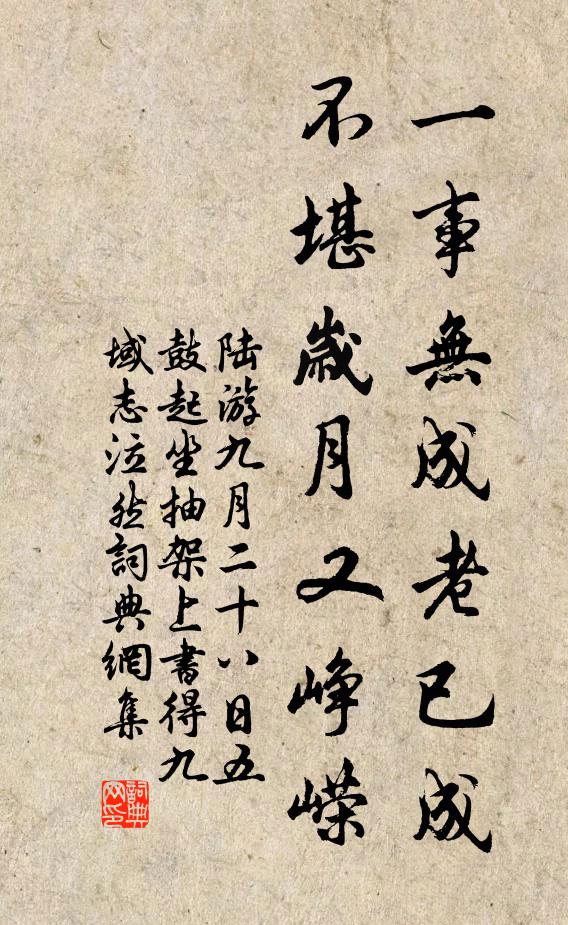 一事無成老已成
不堪歲月又崢嶸
陆游九月二十八日五
鼓起坐抽架上書得九
域志泣然詞典網集
詞典网印